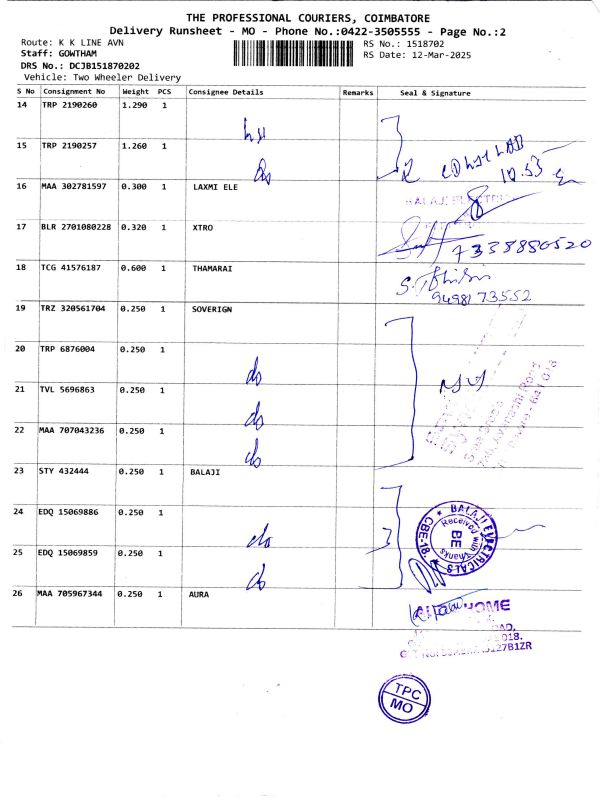 THE PROFESSIONAL COURIERS, COIMBATORE
Delivery Runsheet - MO - Phone No.:0422-3505555 - Page No.:2
Route: K K LINE AVN
RS No.: 1518702
Staff: GOWTHAM
RS Date: 12-Mar-2025
DRS No.: DCJB151870202
Vehicle: Two Wheeler Delivery
S No Consignment No Weight PCS Consignee Details Remarks Seal & Signature
14 TRP 2190260 1.290 1
15 TRP 2190257 1.260 1 do
10.53
16 MAA 302781597 0.300 1 LAXMI ELE
BALAJI ELECTRI
17 BLR 2701080228 0.320 1 XTRO
7338880520
18 TCG 41576187 0.600 1 THAMARAI
9498173552
19 TRZ 320561704 0.250 1 SOVERIGN
20 TRP 6876004 0.250 1 do
21 TVL 5696863 0.250 1 do
22 MAA 707043236 0.250 1 do
23 STY 432444 0.250 1 BALAJI
24 EDQ 15069886 0.250 1 do
BALAJI ELECTRICALS
CBE-18.
Received with Thanks
BE
25 EDQ 15069859 0.250 1 do
26 MAA 705967344 0.250 1 AURA
HOME
018.
127B1ZR
TPC
MO